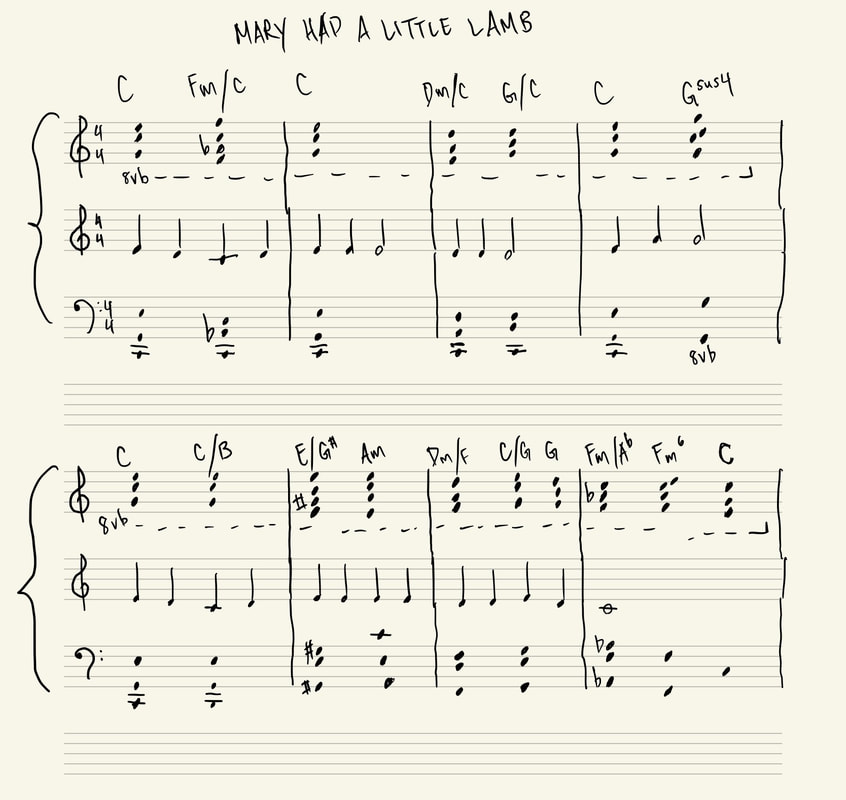 MARY HAD A LITTLE LAMB
C Fm/C C Dm/C G/C C Gsus4
4 4
8vb
4 4
4 4
8vb
C C/B E/G# Am Dm/F C/G G Fm/Ab Fm6 C
8vb